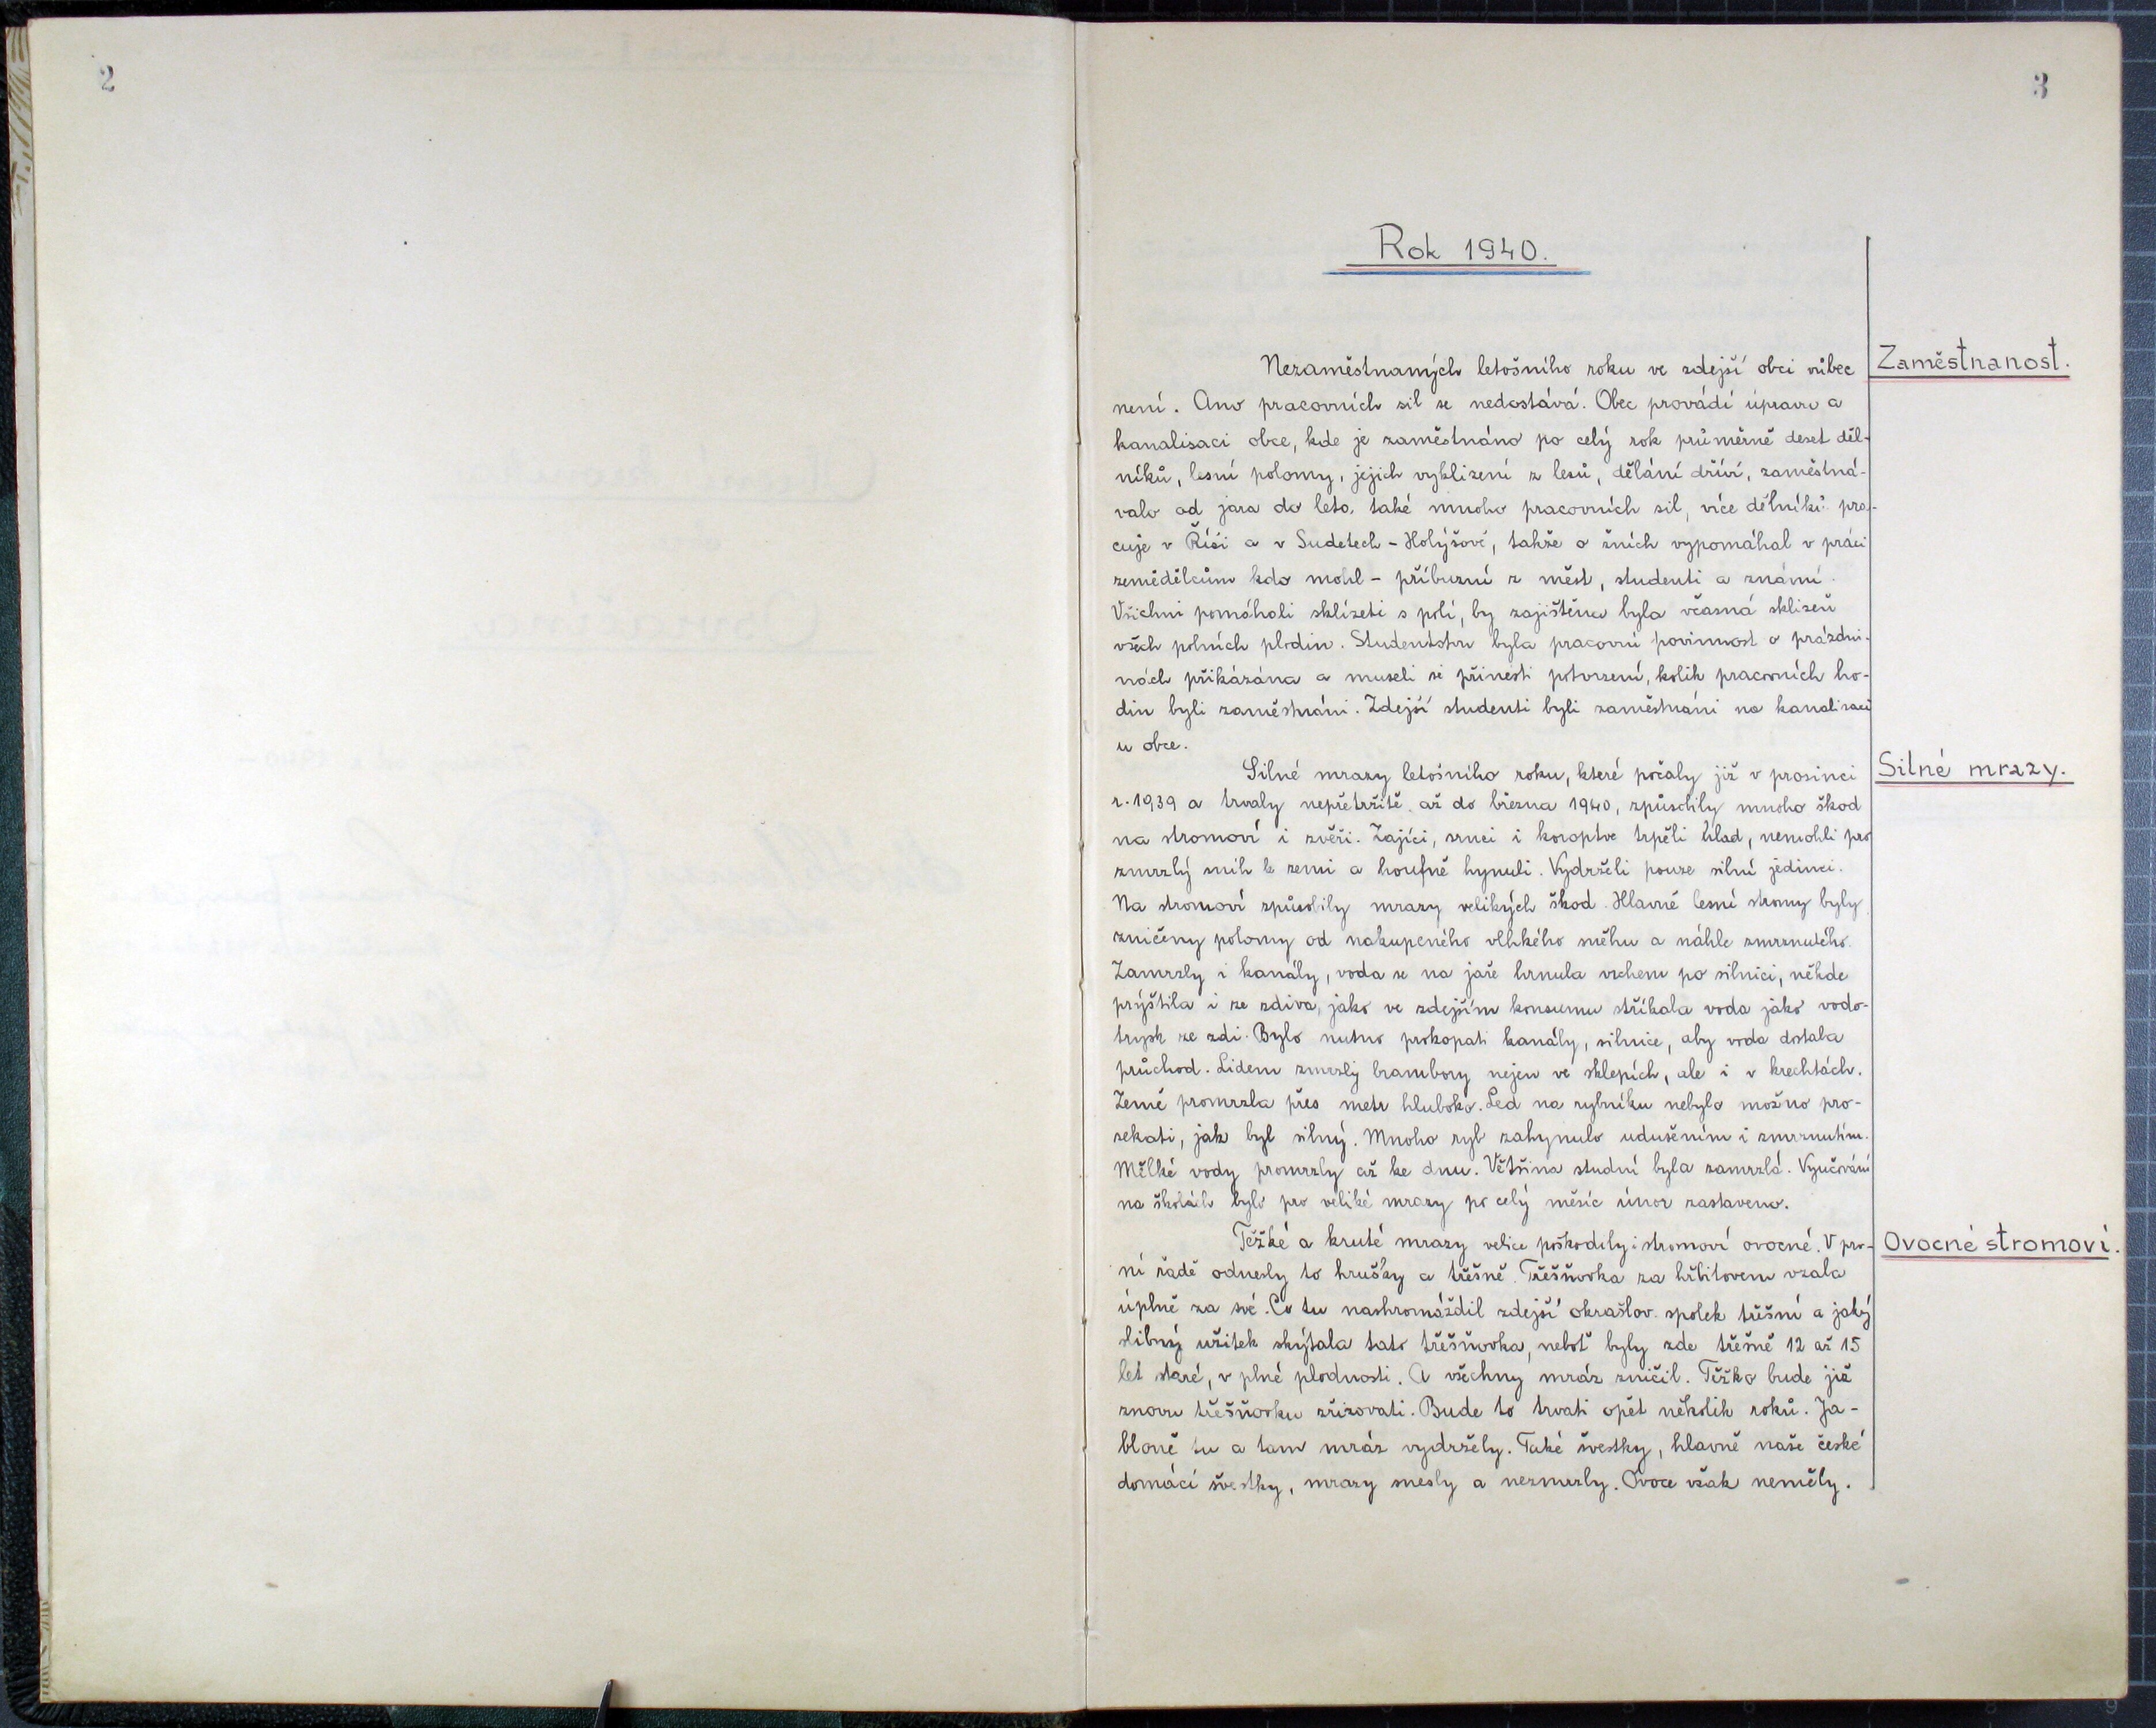 2
3
Rok 1940.
Zaměstnanost.
Nezaměstnaných letošního roku ve zdejší obci vůbec
není. Ano pracovních sil se nedostává. Obec provádí úpravu a
kanalisaci obce, kde je zaměstnáno po celý rok průměrně deset děl-
níků, lesní polomy, jejich vyklizení z lesů, dělání dříví, zaměstná-
valo od jara do léta také mnoho pracovních sil, více dělníků pra-
cuje v Říši a v Sudetech - Holýšově, takže o žních vypomáhal v práci
zemědělcům kdo mohl - příbuzní z měst, studenti a známí.
Všichni pomáhali sklízeti s polí, by zajištěna byla včasná sklizeň
všech polních plodin. Studentstvu byla pracovní povinnost o prázdni-
nách přikázána a museli si přinésti potvrzení, kolik pracovních ho-
din byli zaměstnáni. Zdejší studenti byli zaměstnáni na kanalisaci
u obce.
Silné mrazy.
Silné mrazy letošního roku, které počaly již v prosinci
r. 1939 a trvaly nepřetržitě až do března 1940, způsobily mnoho škod
na stromoví i zvěři. Zajíci, srnci i koroptve trpěli hlad, nemohli pro
zmrzlý sníh k zemi a houfně hynuli. Vydrželi pouze silní jedinci.
Na stromoví způsobily mrazy velikých škod. Hlavně lesní stromy byly
zničeny polomy od nakupeného vlhkého sněhu a náhle zmrznutého.
Zamrzly i kanály, voda se na jaře hrnula vrchem po silnici, někde
prýštila i ze zdiva, jako ve zdejším konsumu stříkala voda jako vodo-
trysk ze zdi. Bylo nutno prokopati kanály, silnice, aby voda dostala
průchod. Lidem zmrzly brambory nejen ve sklepích, ale i v krechtách.
Země promrzla přes metr hluboko. Led na rybníku nebylo možno pro-
sekati, jak byl silný. Mnoho ryb zahynulo udušením i zmrznutím.
Mělké vody promrzly až ke dnu. Většina studní byla zamrzlá. Vyučování
na školách bylo pro veliké mrazy po celý měsíc únor zastaveno.
Ovocné stromoví.
Těžké a kruté mrazy velice poškodily i stromoví ovocné. V prv-
ní řadě odnesly to hrušky a třešně. Třešňovka za hřbitovem vzala
úplně za své. Co tu nashromáždil zdejší okrašlov. spolek třešní a jaký
slibný užitek skýtala tato třešňovka, neboť byly zde třešně 12 až 15
let staré, v plné plodnosti. A všechny mráz zničil. Těžko bude již
znovu třešňovku zřizovati. Bude to trvati opět několik roků. Ja-
bloně tu a tam mráz vydržely. Také švestky, hlavně naše české
domácí švestky, mrazy snesly a nezmrzly. Ovoce však neměly.